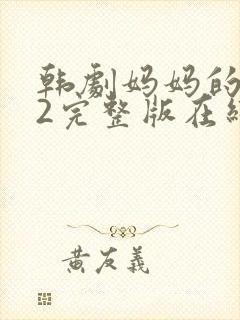 韩剧妈妈的
2完整版在线
黄友义